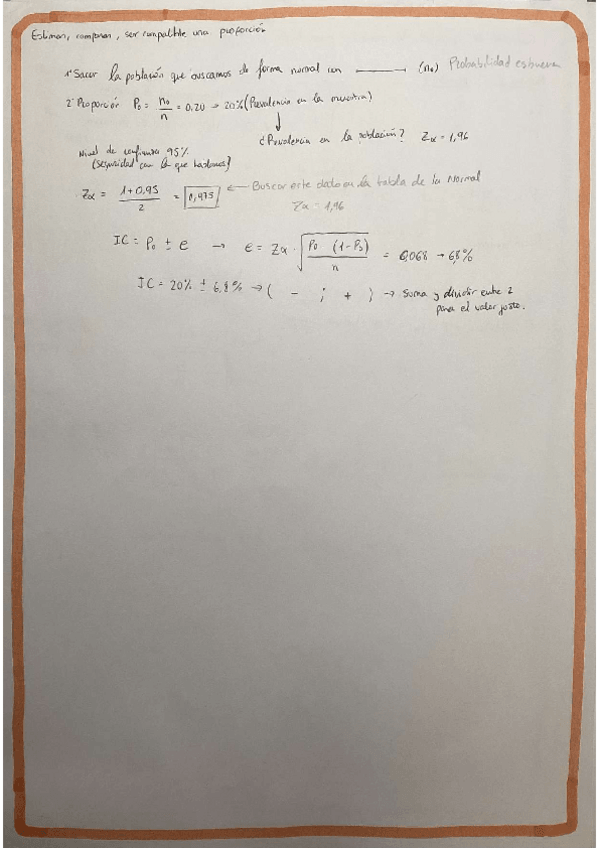 Estiman, comparan, ser compatible una proporción
1º Sacar la población que buscamos de forma normal con ——— (n₀) Probabilidad
2º Proporción P₀ = n₀/n = 0,20 → 20% (Prevalencia en la muestra)
↓
¿Prevalencia en la población? Zα = 1,96
Nivel de confianza 95%
(Seguridad con la que hablamos)
Zα = (1+0,95)/2 = 0,975 ← Buscar este dato en la tabla de la Normal
Zα = 1,96
IC = P₀ ± e → e = Zα · √(P₀ (1-P₀)/n) = 0,068 → 6,8%
IC = 20% ± 6,8% → ( - ; + ) → Suma y dividir entre 2
para el valor justo.